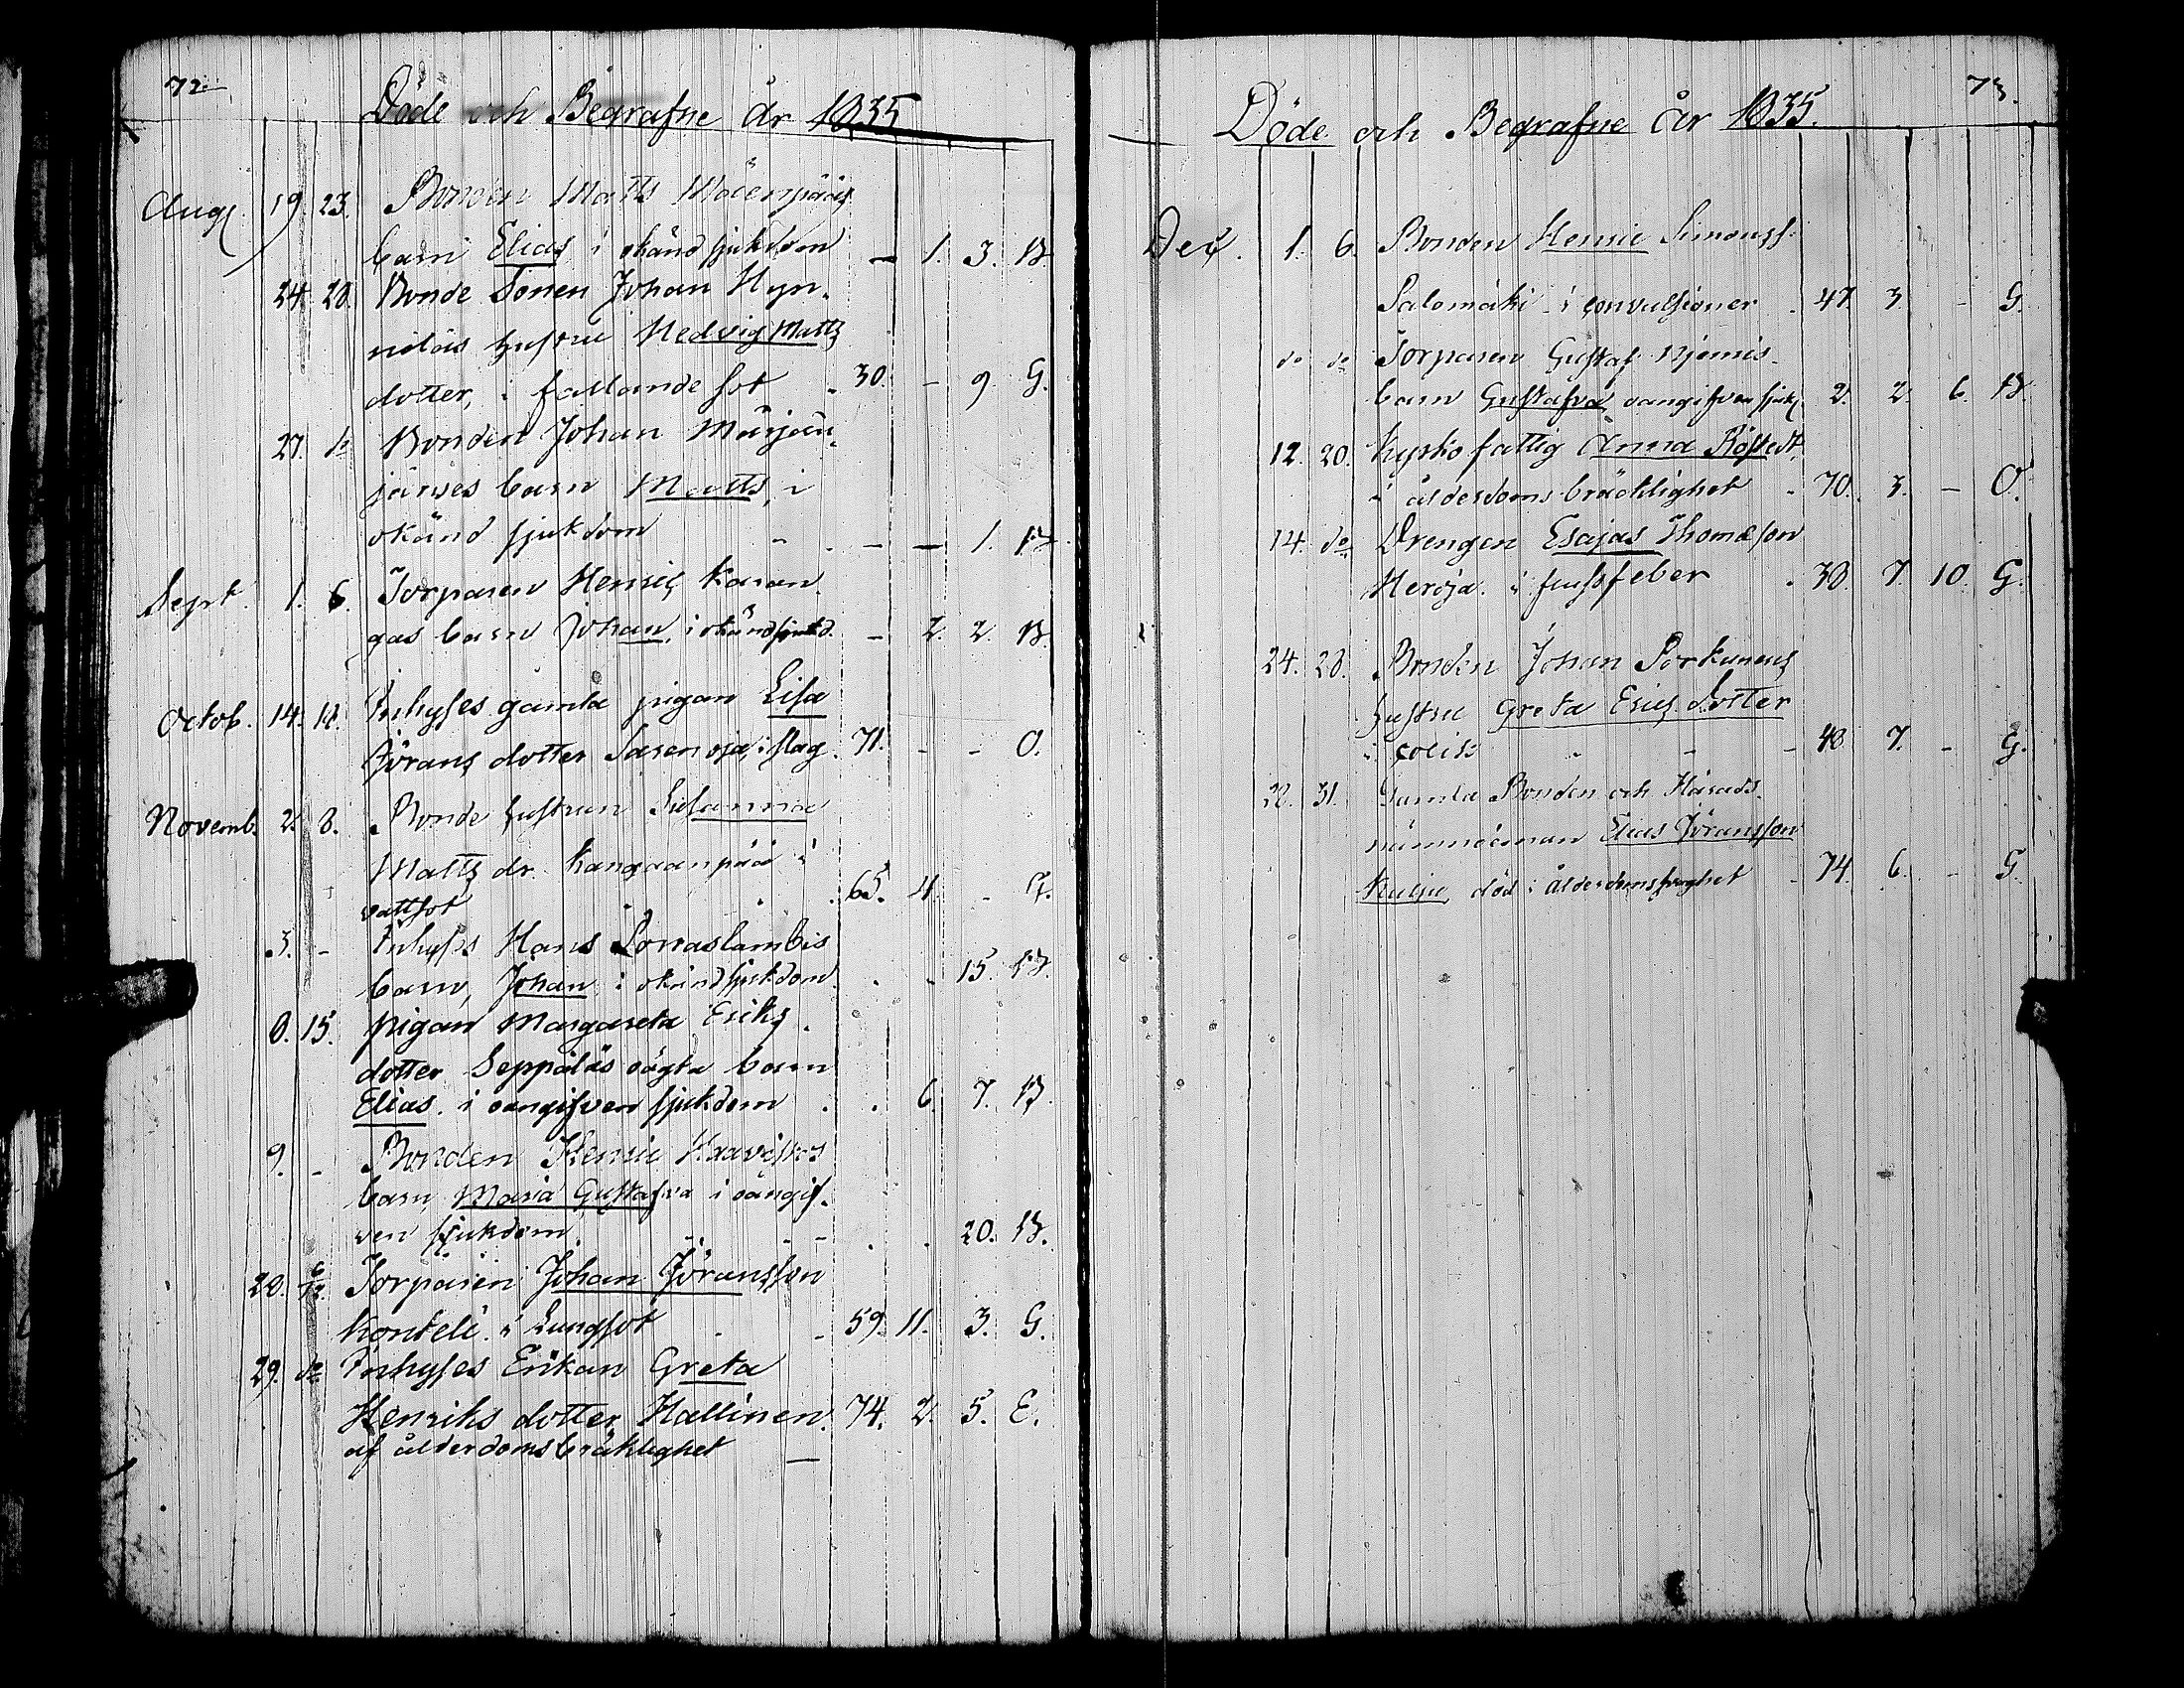 72.
Döde och Begrafne år 1835
Aug. 19. 23. Bonden Matts Mäenpääs
barn Elias i okänd sjukdom — 1. 3. B.
24. 28. Bonde Sonen Johan Hyn-
niläs hustru Hedvig Matts
dotter, i fallande sot . 30. – 9 G.
27. do Bonden Johan Marjan
järwes barn Matts, i
okänd sjukdom - . – — 1. B.
Sept. 1. 6. Torparen Henric Karan
gas barn Johan, i okänd sjukd. – 2. 2. B.
Octob. 14. 18. Inhyses gamla pigan Lisa
Jörans dotter Sarenoja, i slag. 71. - - O.
Novemb. 2. 8. Bonde hustrun Susanna
Matts dr. Kangaanpää i
vattsot . . . 65. 4. - G.
3. – Inhyses Hans Lovaslambis
barn, Johan i okänd sjukdom . . - 15. B.
8. 15. pigan Margareta Eriks
dotter Seppäläs oägta barn
Elias. i oangifven sjukdom . . 6. 7. B.
9. – Bonden Henric Haavistos
barn, Maria Gustafva i oangif-
ven sjukdom. - - - . . 20. B.
28. 6/12. Torparen Johan Jöransson
Konteli i Lungsot . - 59. 11. 3. G.
29. do Inhyses Enkan Greta
Henriks dotter Hallinen. 74. 2. 5. E.
af ålderdomsbräklighet —
73.
Döde och Begrafne år 1835.
Dec. 1. 6. Bonden Henric Simonss.
Salomäki i convulsioner . 47. 3. – G.
do do Torparen Gustaf Njemis
barn Gustafva oangifven sjukd. 2. 2. 6. B.
12. 20. Kyrko fattig Anna Röstedt,
i ålderdoms bräcklighet . 70. 3. – O.
14. do Drengen Esajas Thomasson
Heroja. i frussfeber . 38. 7. 10. G.
24. 28. Bonden Johan Porkunens
hustru Greta Erics dotter
i colik - - - 48. 7. - G.
28. 31. Gamla Bonden och Härads
nämndeman Elias Jöransson
Kulju, död i ålderdomssvaghet - 74. 6. - G.